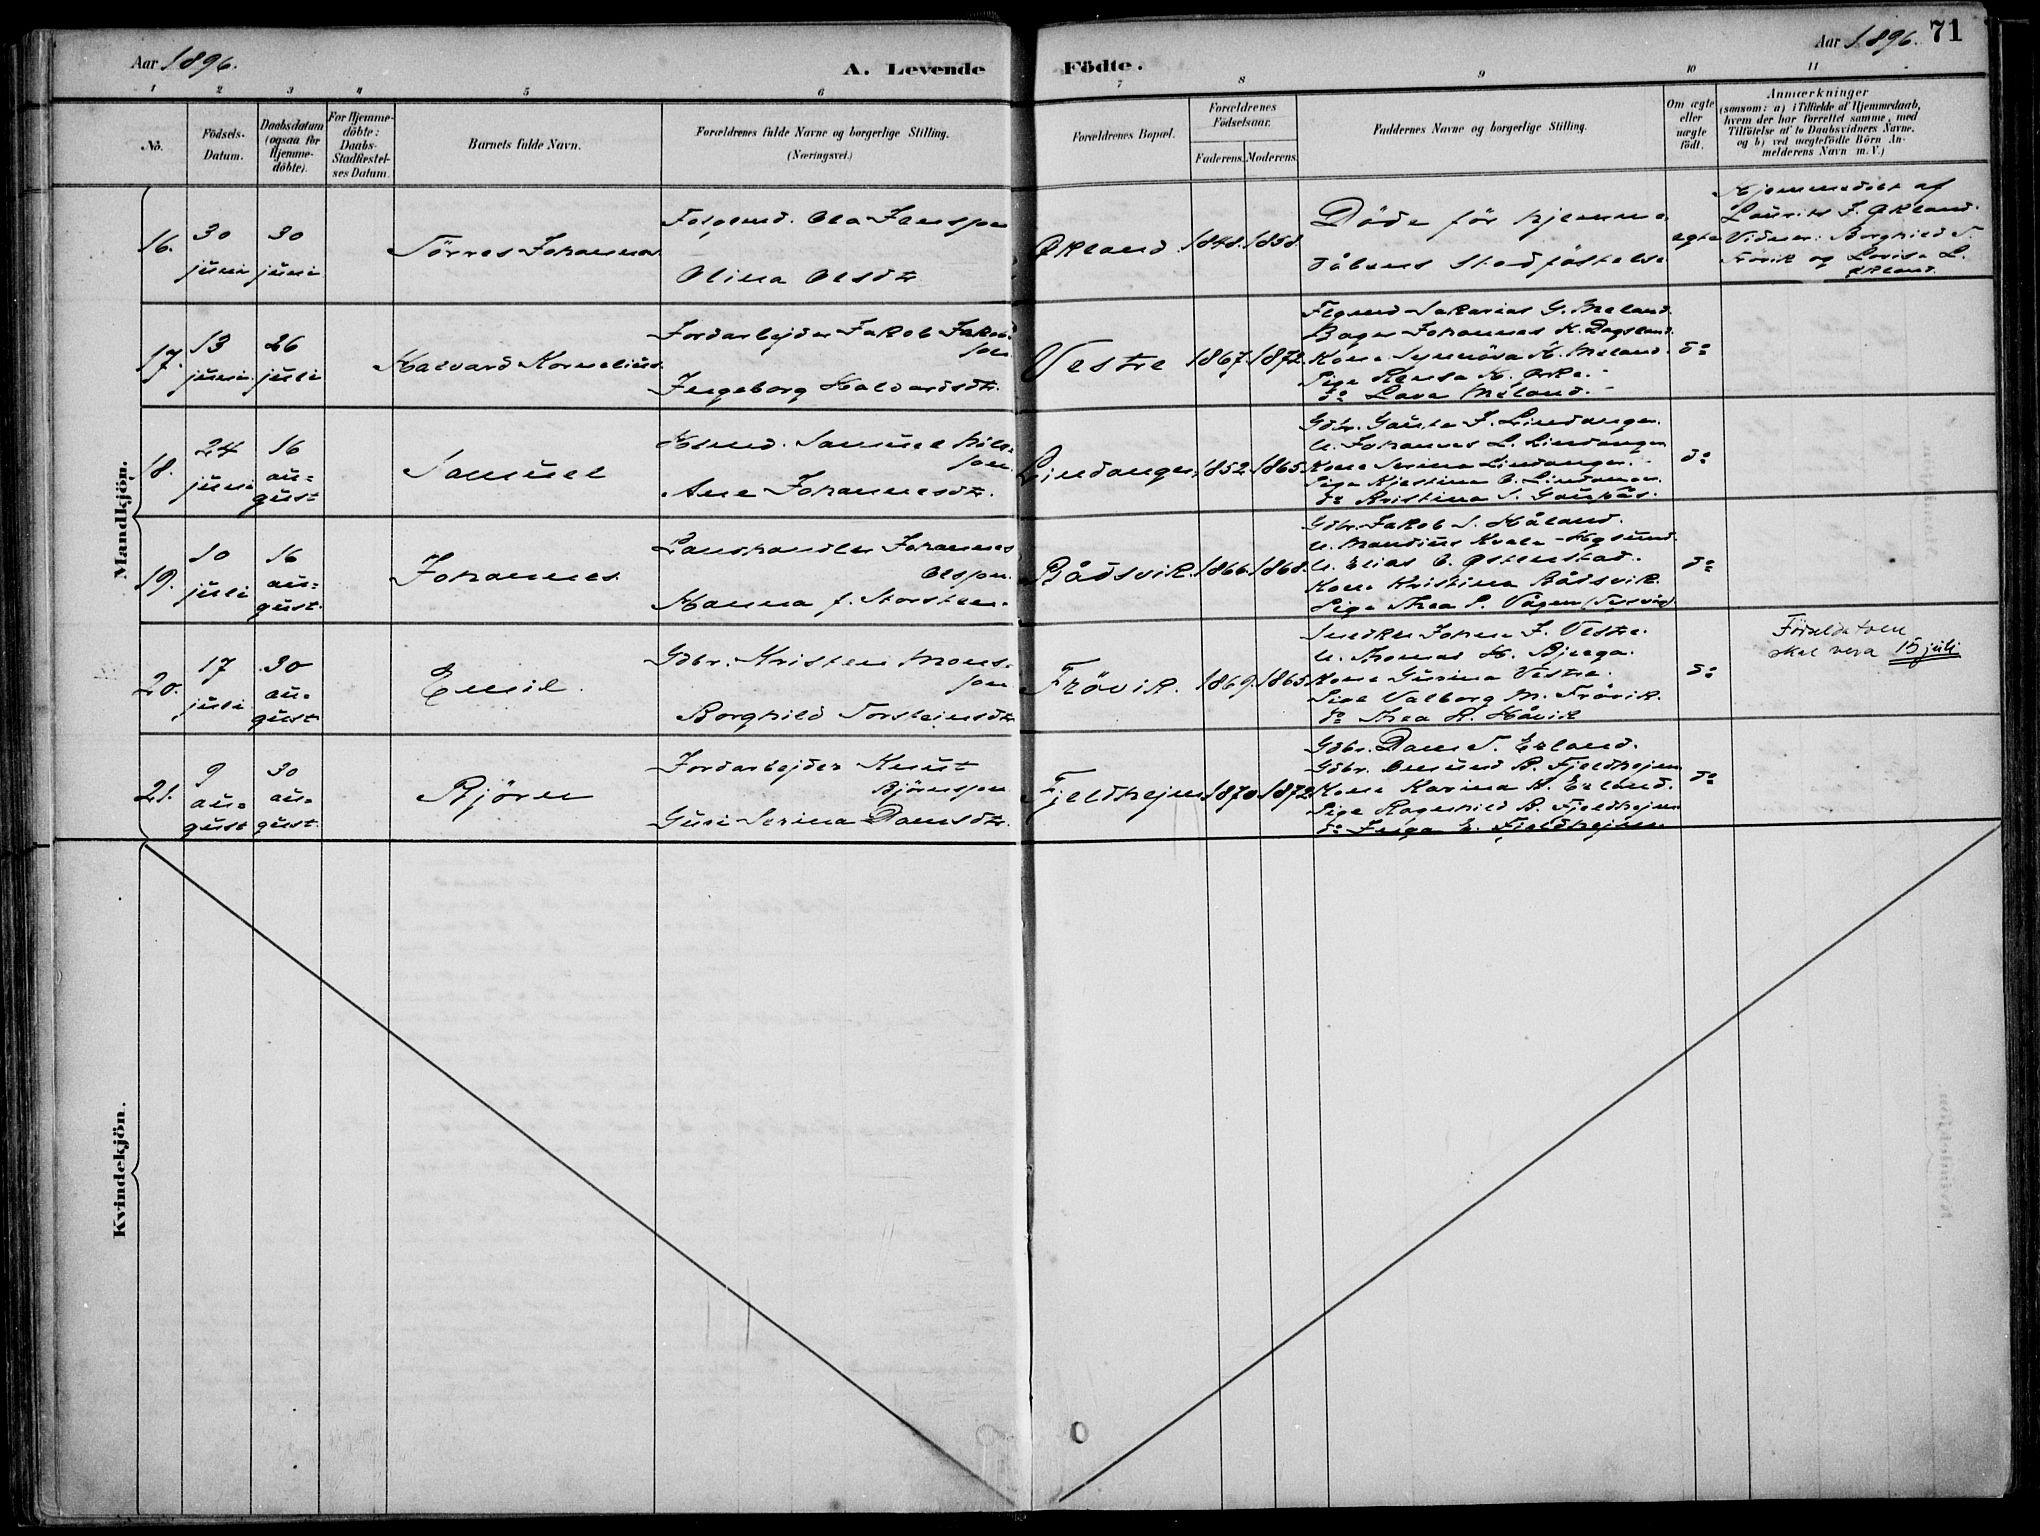 Aar 1896.
A. Levende
Födte.
Aar 1896.
71
1 2 3 4 5 6 7 8 9 10 11
No.
Födsels-
Datum.
Daabsdatum
(ogsaa for
Hjemme-
döbte).
For Hjemme-
döbte:
Daabs-
Stadfæstel-
ses Datum.
Barnets fulde Navn.
Forældrenes fulde Navne og borgerlige Stilling.
(Næringsvei.)
Forældrenes Bopæl.
Forældrenes
Födselsaar.
Faderens. Moderens.
Faddernes Navne og borgerlige Stilling.
Om ægte
eller
uægte
födt.
Anmærkninger
(saasom: a) i Tilfælde af Hjemmedaab,
hvem der har forrettet samme, med
Tilföielse af to Daabsvidners Navne.
og b) ved uægtefödte Börn An-
melderens Navn m. V.)
Mandkjön.
16.
30
juni
30
juni
Törres Johannes
Ola Jensson
Olina Olsdtr
Økland
1848.
1858.
Döde för hjemme
dåbens Stadfästelse
egte
Hjemmedöbt af
Laurits J. Økland.
Vidner: Borghild T.
Frövik og Lovise L.
Økland.
17.
13
juni
26
juli
Halvard Kornelius.
Jordarbejder Jakob Jakob
son
Ingeborg Halvardsdtr.
Vestre
1867.
1872.
Sakarias G. Meland.
Bager Johannes K. Dagsland.
Kone Synnöva K. Meland.
Pige
do Lava Meland.
do
18.
24
juni
16
au=
gust
Samuel
Samuel Nils
son.
Ane Johannesdtr.
Lindanger,
1852.
1865.
Gdbr. Gauta J. Lindanger.
U. Johannes L. Lindanger
Kone Serina Lindanger.
Pige Kjestina E. Lindanger.
do Kristina S. Gaupås.
do
19.
10
juli
16
au=
gust.
Johannes.
Landhandler Johannes
Olsson.
Hanna f. Storsteen.
Bådsvik.
1866.
1868.
Gdbr. Jakob S. Håland.
U. Mandius Kvale-Høgsund
U. Elias E. Østenstad.
Kone Kristina Bådsvik.
Pige Thea S. Vågen (Tysvær)
do
20.
17
juli
30
au=
gust
Emil.
Gdbr. Kristen Mons=
son
Borghild Torsteinsdtr
Frövik.
1869.
1865.
Snedker Johan J. Vestre.
U. Thomas H. Bjerga.
Kone Gurina Vestre.
Pige Valborg M. Frövik.
do Thea K. Håvik
do
Födseldatoen
skal vera 15 juli
21.
9
au=
gust
30
au=
gust.
Björn
Jordarbejder Knut
Björnsson
Guri Serina Danesdtr.
Fjeldhejm
1870.
1872.
Gdbr. Dane T. Erland.
Gdbr. Omund B. Fjeldhejm
Kone Karina K. Erland.
Pige Ragnhild B. Fjeldhejm
do Inga E. Fjeldhejm.
do
Kvindekjön.